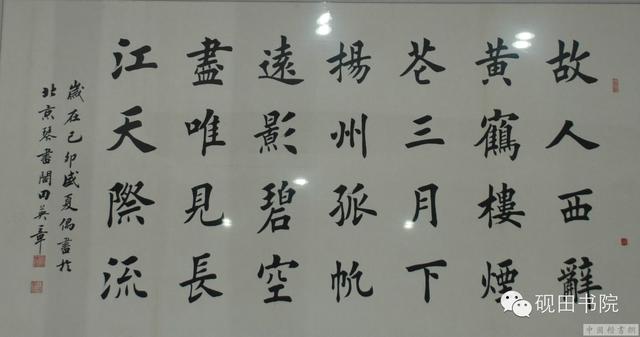 故人西辭
黄鶴樓煙
花三月下
揚州孤帆
遠影碧空
盡唯見長
江天際流
歲在己卯盛夏偶書於
北京琴書閣田英章
砚田书院
中国楷书网